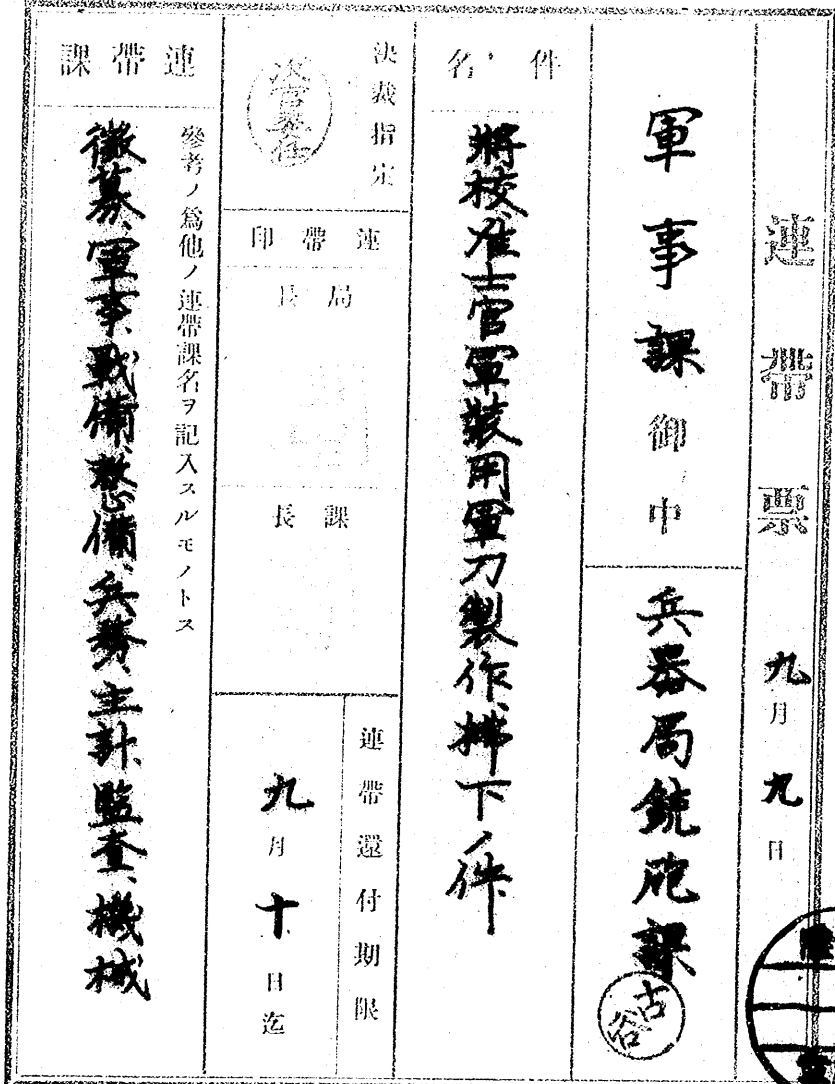 連帶票 九月九日
軍事課御中
兵器局銃砲課
古谷
件名
將校、准士官軍裝用軍刀製作、拂下ノ件
決裁指定
次官委任
連帶印
局長
課長
連帶還付期限
九月十日迄
連帶課
參考ノ爲他ノ連帶課名ヲ記入スルモノトス
徵募、軍事、戰備、整備、兵務、主計、監査、機械